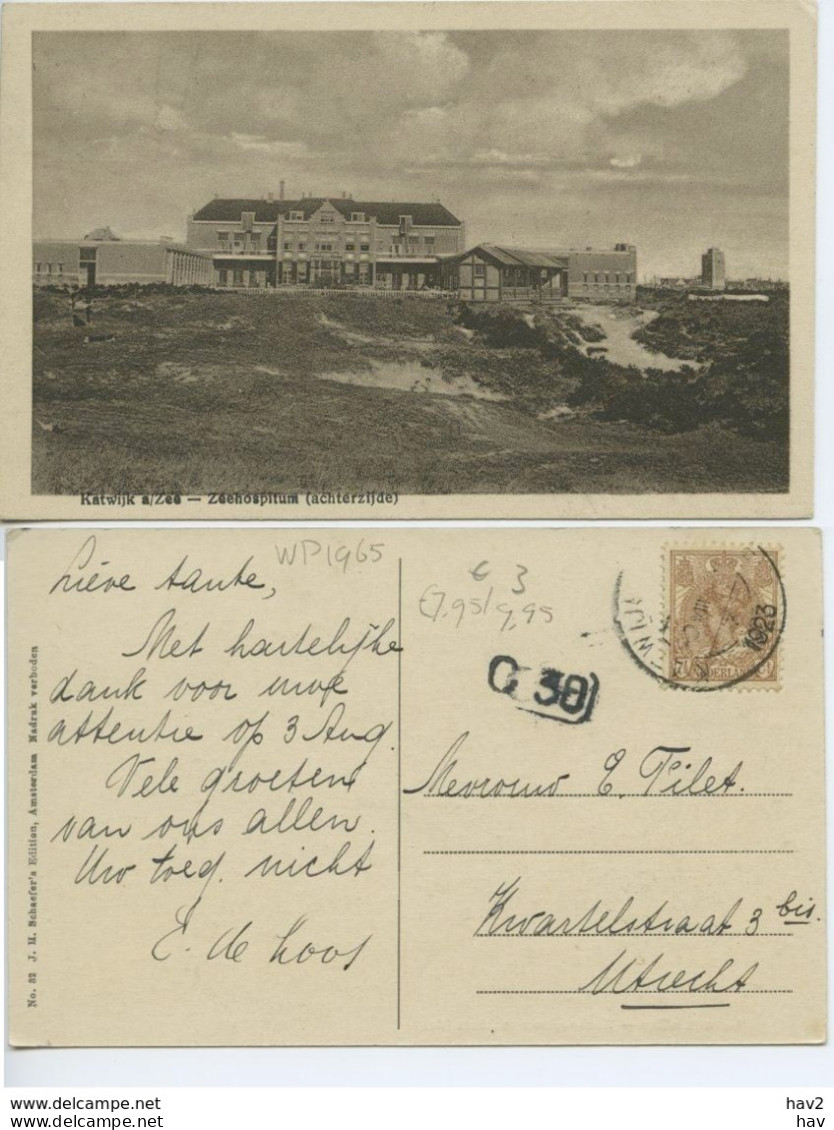 Katwijk a/Zee — Zeehospitum (achterzijde)
WP1965
Lieve tante,
Met hartelijke
dank voor uwe
attentie op 3 Aug.
Vele groeten
van ons allen.
Uw toeg. nicht
E. de Loos
No. 32 J. H. Schaefer's Edition, Amsterdam Nadruk verboden
€ 3
€7,95/9,95
30
1923
7½
NEDERLAND
Mevrouw E. Tilet.
Kwartelstraat 3 bis.
Utrecht
www.delcampe.net
www.delcampe.net
hav2
hav